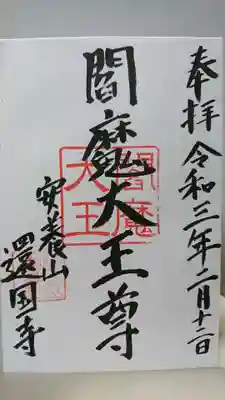 奉拝 令和三年二月十二日
閻魔大王尊
閻魔大王
安養山
還国寺